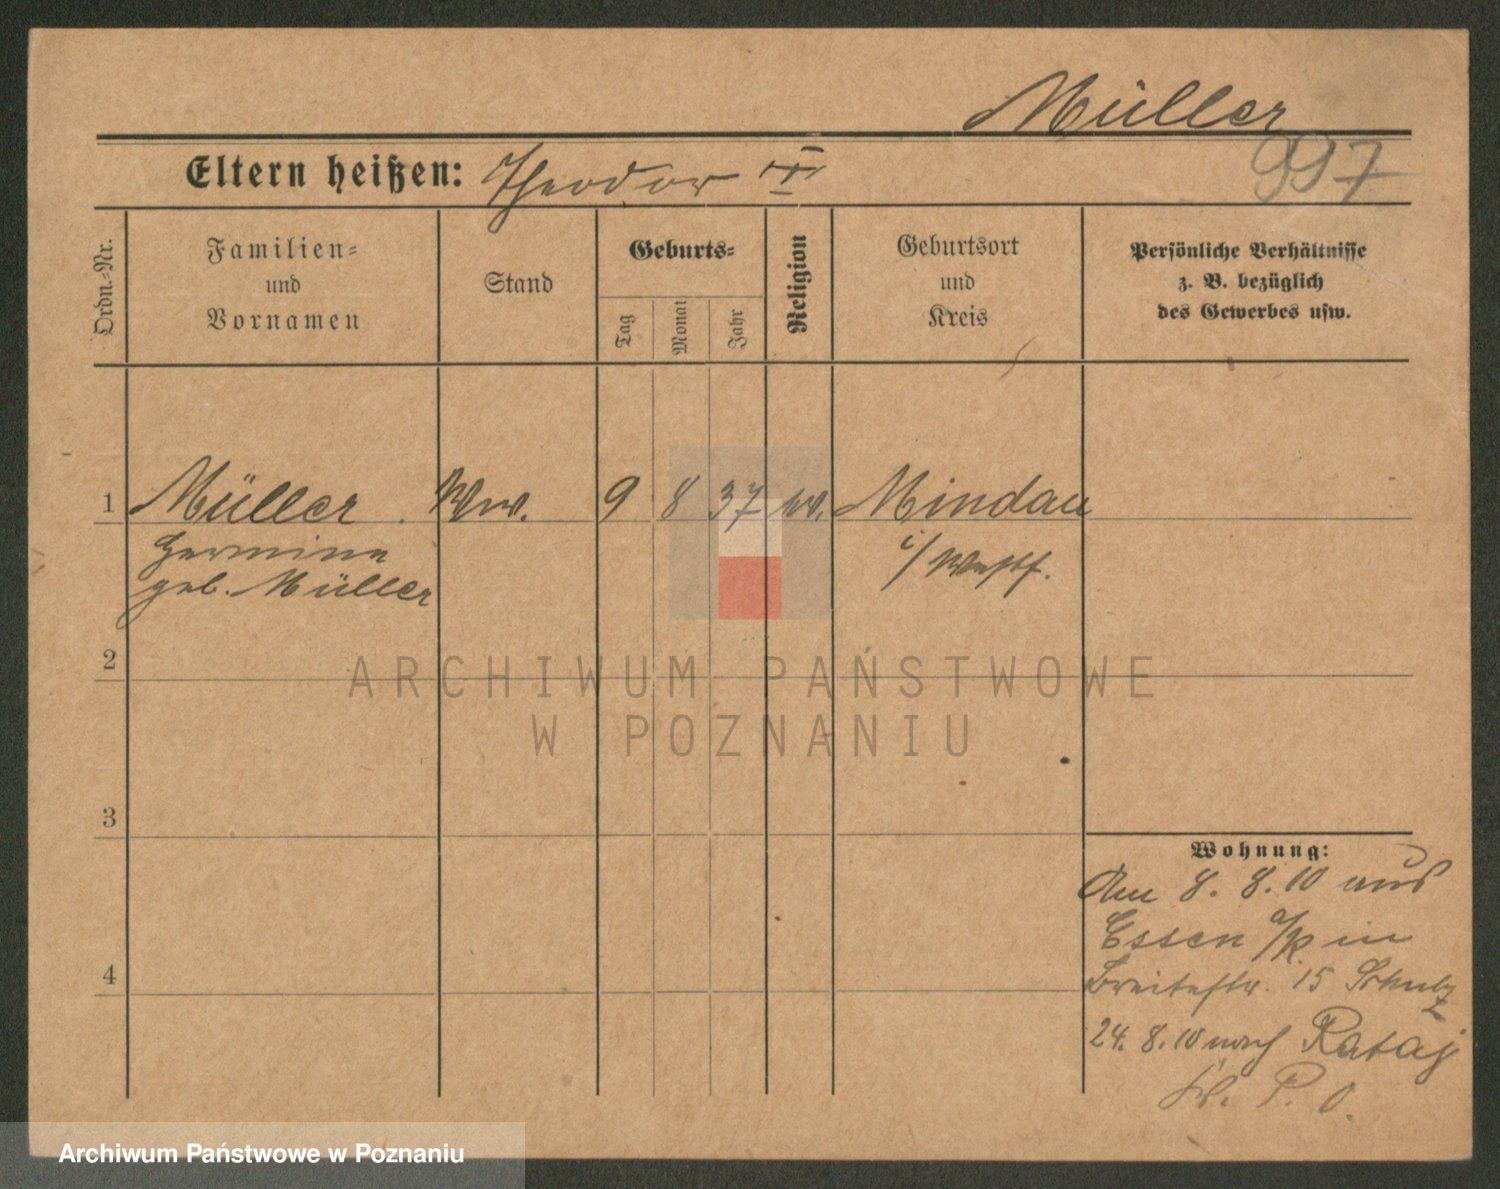 Müller
997
Eltern heißen: Theodor
Ordn.-Nr.
Familien-
und
Vornamen
Stand
Geburts-
Tag
Monat
Jahr
Religion
Geburtsort
und
Kreis
Persönliche Verhältnisse
z. B. bezüglich
des Gewerbes usw.
1 Müller Ww. 9 8 37 Mindau
Hermine i/Westf.
geb. Müller
2
ARCHIWUM PAŃSTWOWE
W POZNANIU
3
Wohnung:
Am 8. 8. 10 aus
Essen a/R. in
4
Breitestr. 15 Schulz
24. 8. 10 nach Rataj
Kr. P. O.
Archiwum Państwowe w Poznaniu